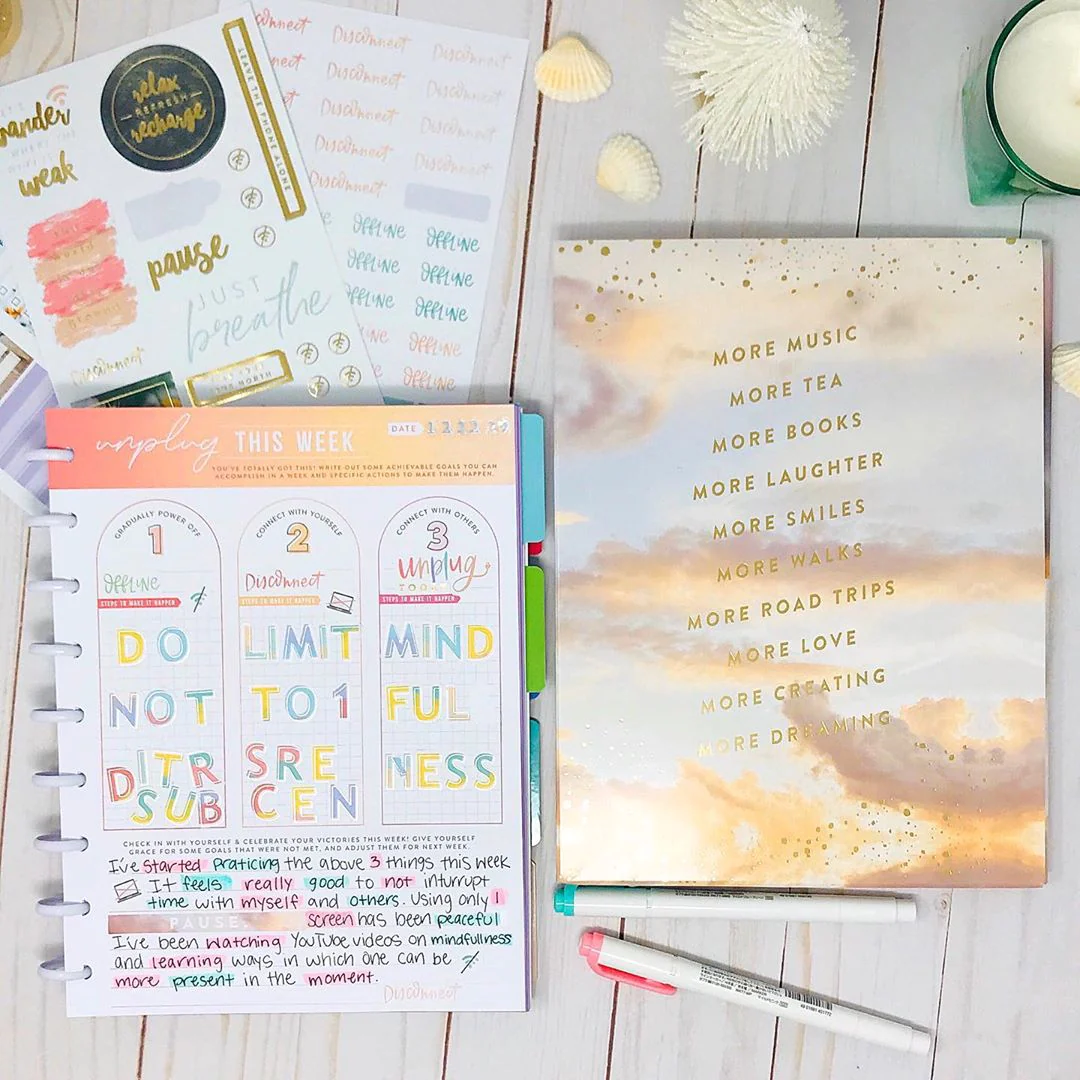 wander
weak
relax
REFRESH
recharge
LEAVE THE PHONE ALONE
pause
JUST
breathe
Disconnect
Disconnect
Disconnect
Disconnect
Disconnect
Disconnect
Disconnect
Disconnect
Disconnect
Disconnect
Disconnect
OFFLINE
OFFLINE
OFFLINE
OFFLINE
OFFLINE
OFFLINE
OFFLINE
OFFLINE
unplug THIS WEEK
DATE
YOU'VE TOTALLY GOT THIS! WRITE OUT SOME ACHIEVABLE GOALS YOU CAN
ACCOMPLISH IN A WEEK AND SPECIFIC ACTIONS TO MAKE THEM HAPPEN.
GRADUALLY POWER OFF
1
OFFLINE
STEPS TO MAKE IT HAPPEN
DO
NOT
DITR
SUB
CONNECT WITH YOURSELF
2
Disconnect
STEPS TO MAKE IT HAPPEN
LIMIT
TO 1
SRE
CEN
CONNECT WITH OTHERS
3
unplug
STEPS TO MAKE IT HAPPEN
MIND
FUL
NESS
CHECK IN WITH YOURSELF & CELEBRATE YOUR VICTORIES THIS WEEK! GIVE YOURSELF
GRACE FOR SOME GOALS THAT WERE NOT MET, AND ADJUST THEM FOR NEXT WEEK.
I've Started Praticing the above 3 things this week
It feels really good to not inturrupt
time with myself and others. Using only 1
PAUSE. screen has been peaceful
I've been watching YouTube videos on mindfullness
and learning ways in which one can be
more present in the moment.
Disconnect
MORE MUSIC
MORE TEA
MORE BOOKS
MORE LAUGHTER
MORE SMILES
MORE WALKS
MORE ROAD TRIPS
MORE LOVE
MORE CREATING
MORE DREAMING